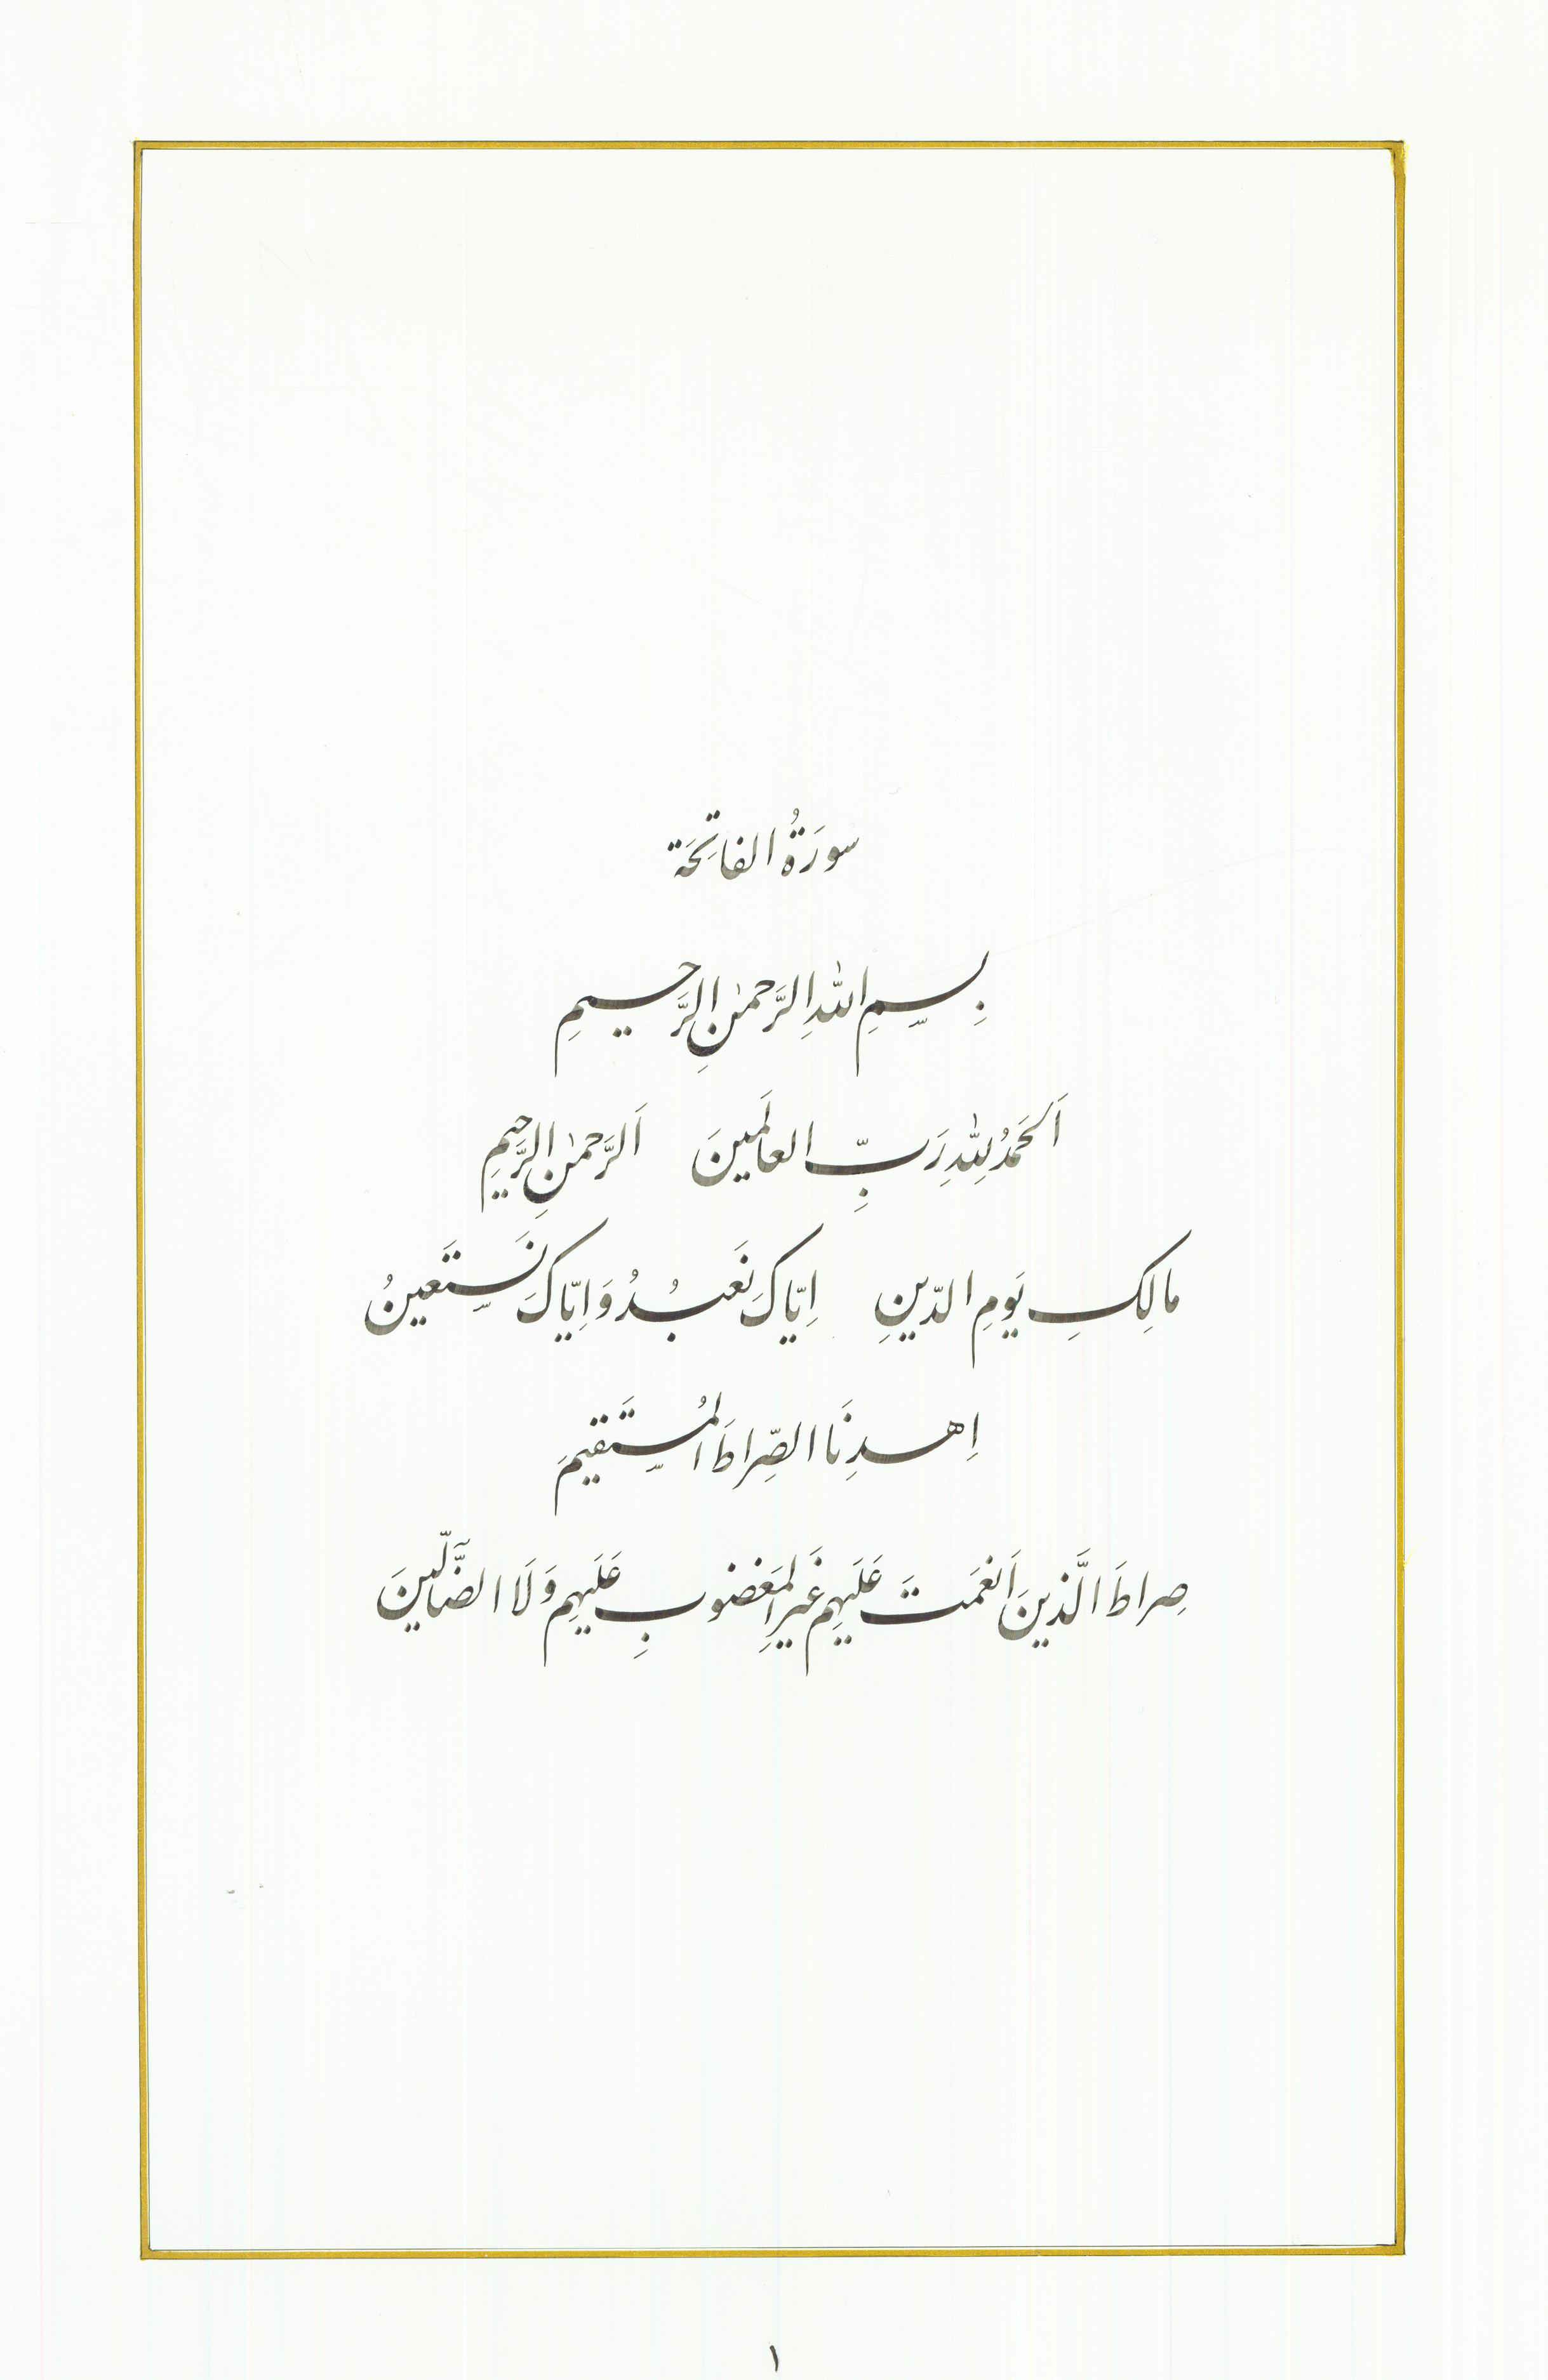 سورَةُ الفاتِحَة
بِسمِ اللهِ الرَّحمٰنِ الرَّحیمِ
اَلحَمدُ لِلّٰهِ رَبِّ العالَمینَ اَلرَّحمٰنِ الرَّحیمِ
مالِکِ یَومِ الدّینِ اِیّاکَ نَعبُدُ وَ اِیّاکَ نَستَعینُ
اِهدِنَا الصِّراطَ المُستَقیمَ
صِراطَ الَّذینَ اَنعَمتَ عَلَیهِم غَیرِ المَغضوبِ عَلَیهِم وَ لَا الضّآلّینَ
۱